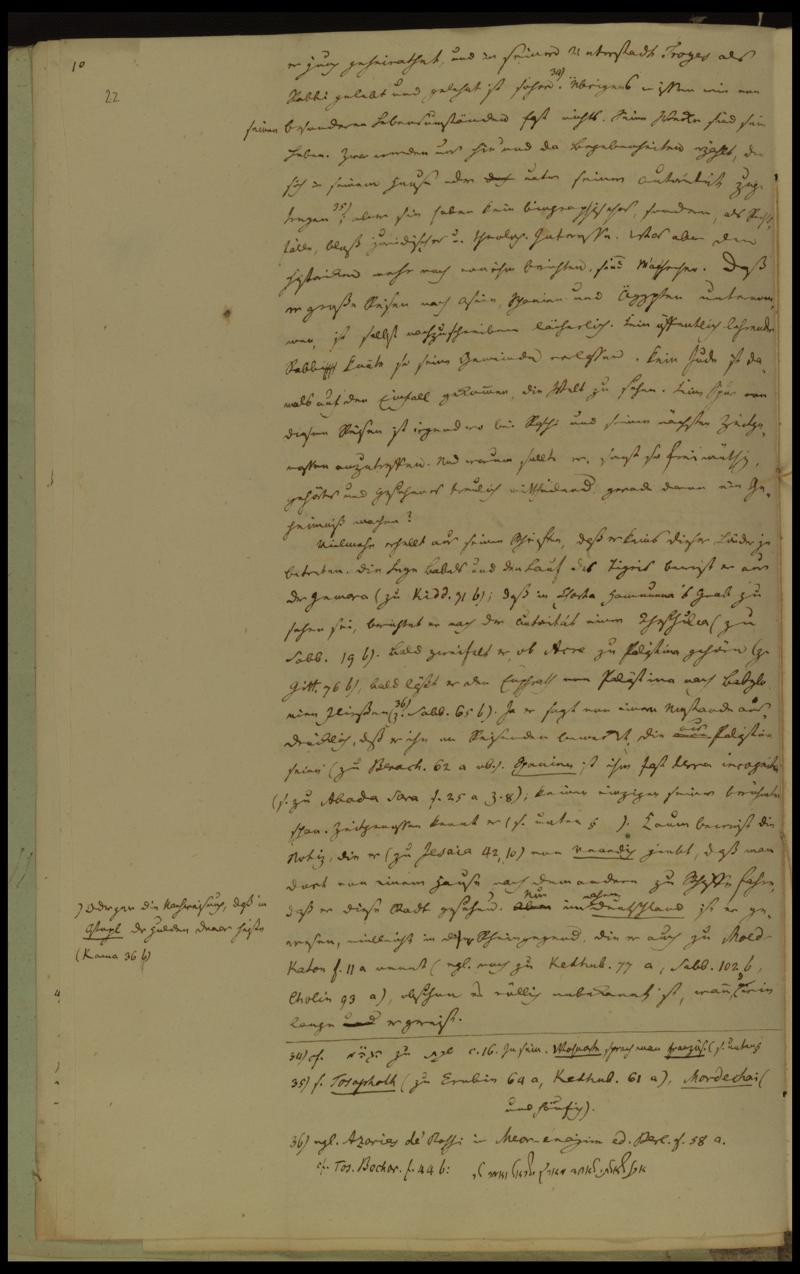 10
22
er jung geheirathet, und in seiner Vaterstadt Troyes als
Rabbi gelebt und gelehrt ist sicher. 34) Übrigens wissen wir von
seinen besonderen Lebensumständen fast nichts. Seine Werke sind sein
Leben. Zwar werden uns hin und da Begebenheiten erzählt, die
sich in seinem Hause oder unter seiner Autorität zuge-
tragen 35); aber sie haben kein biographisches, sondern, als Rechts-
fälle, bloß juridisches u. theolog. Interesse. Was aber die
Historiker mehr noch von ihm berichten, sind Mährchen. Daß
er große Reisen nach Asien, Spanien und Ägypten unternom-
men, ist selbst nachzuschreiben lächerlich. Kein öffentlich lehrender
Rabbi hätte so seine Gemeinde verlassen. Kein Jude ist da-
mals auf den Einfall gekommen, die Welt zu sehen. Keine Spur von
diesen Reisen ist irgendwo bei Raschi und seinen nächsten Zeitge-
nossen anzutreffen. Und warum sollte er, sonst so freimüthig,
gehörtes und gesehenes treulich mittheilend, gerade daraus ein Ge-
heimniß machen?
Vielmehr erhellt aus seinen Schriften, daß er keins dieser Länder je
betreten. Die Lage Babels und den Lauf des Tigris beweist er aus
der Gemara (zu Kidd. 71 b); daß in Hamnuna's Grab zu
sehen sei, berichtet er nach der Autorität einer (zu
Sabb. 19 b). Bald zweifelt er, ob Acre zu Palästina gehöre (zu
Gitt. 76 b), bald läßt er den Euphrath von Palästina nach Babylo-
nien fließen 36) (z. Sabb. 65 b). Ja er sagt von einem Umstande aus-
drücklich, daß er ihn an Reisenden bemerkt, die aus Palästina
seien (zu Berach. 62 a ob.). Spanien ist ihm fast terra incognita
(s. zu Aboda Sara f. 25 a Z. 8); keinen einzigen seiner berühmten
span. Zeitgenossen kennt er (s. unten § ). Kaum beweist die
Notiz, die er (zu Jesaia 42, 10) von Venedig giebt, daß man
dort von einem Hause nach dem andern zu Schiffe fahre,
daß er diese Stadt gesehen. Nur in Deutschland ist er ge-
wesen, vielleicht in der Rheingegend, die er auch zu Moed
Katon f. 11 a nennt (vgl. noch zu Kethub. 77 a, Sabb. 102 b,
Cholin 93 a), obschon es völlig unbekannt ist, wann, wie
lange er gereist.
) Oder gar die Nachweisung, daß in
der Gulden Denar heiße
(Kama 36 b)
34) cf. zu c. 16. In sein. Wohnorte sprach man französ. (s. unten §
35) s. Tosaphoth (zu Erubin 64 a, Kethub. 61 a), Mordechai (
und häufig).
36) vgl. Azarias de' Rossi in Meor enajim ed. Berl. f. 58 a.
cf. Tos. Bechor. f. 44 b: